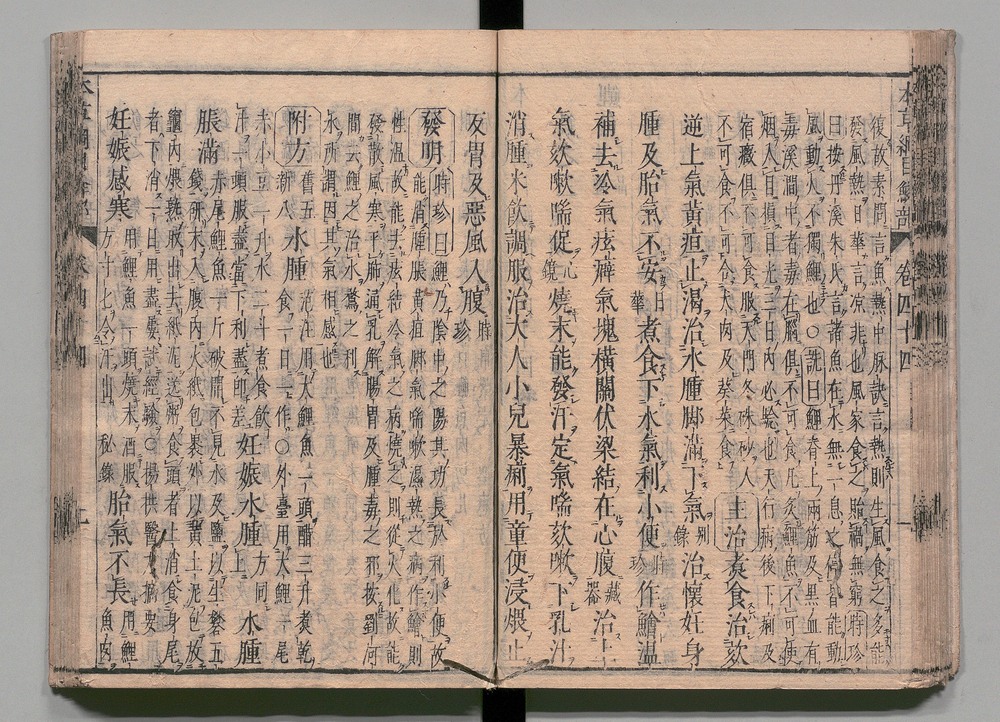 本草綱目鱗部 卷四十四
復故素問言魚熱中脉訣言熱則生風食之多能
發風熱日華言凉非也風家食之貽禍無窮時珍
曰按丹溪朱氏言諸魚在水無一息之停皆能動
風動火不獨鯉也○詵曰鯉脊上兩筋及黑血有
毒溪澗中者毒在腦俱不可食凡炙鯉魚不可使
烟入目損目光三日內必驗也天行病後下痢及
宿癥俱不可食服天門冬朱砂人
不可食不可合犬肉及葵菜食 主治煮食治欬
逆上氣黃疸止渴治水腫脚滿下氣 別錄 治懷妊身
腫及胎氣不安 日華 煮食下水氣利小便 時珍 作鱠溫
補去冷氣痃癖氣塊橫關伏梁結在心腹 藏器 治上
氣欬嗽喘促 心鏡 燒末能發汗定氣喘欬嗽下乳汁
消腫米飲調服治大人小兒暴痢用童便浸煨止
反胃及惡風入腹 時珍
發明 時珍曰鯉乃陰中之陽其功長於利小便故
能消腫脹黃疸脚氣喘嗽濕熱之病作鱠則
性溫故能去痃結冷氣之病燒之則從火化故能
發散風寒平肺通乳解腸胃及腫毒之邪按劉河
間云鯉之治水鶩之利
水所謂因其氣相感也
附方 舊五新八 水腫 范汪用大鯉魚一頭醋三升煮乾
食一日一作○外臺用大鯉一尾
赤小豆一升水二斗煮食飲
汁一頓服盡當下利盡即差 妊娠水腫 方同上 水腫
脹滿 赤尾鯉魚一斤破開不見水及鹽以生礬五
錢研末入腹內火紙包裹外以黃土泥包放
竈內煨熟取出去紙泥送粥食頭者上消食身尾
者下消一日用盡屢試經驗○楊拱醫方摘要
妊娠感寒 用鯉魚一頭燒末酒服
方寸七令汗出 秘錄 胎氣不長 用鯉
魚肉